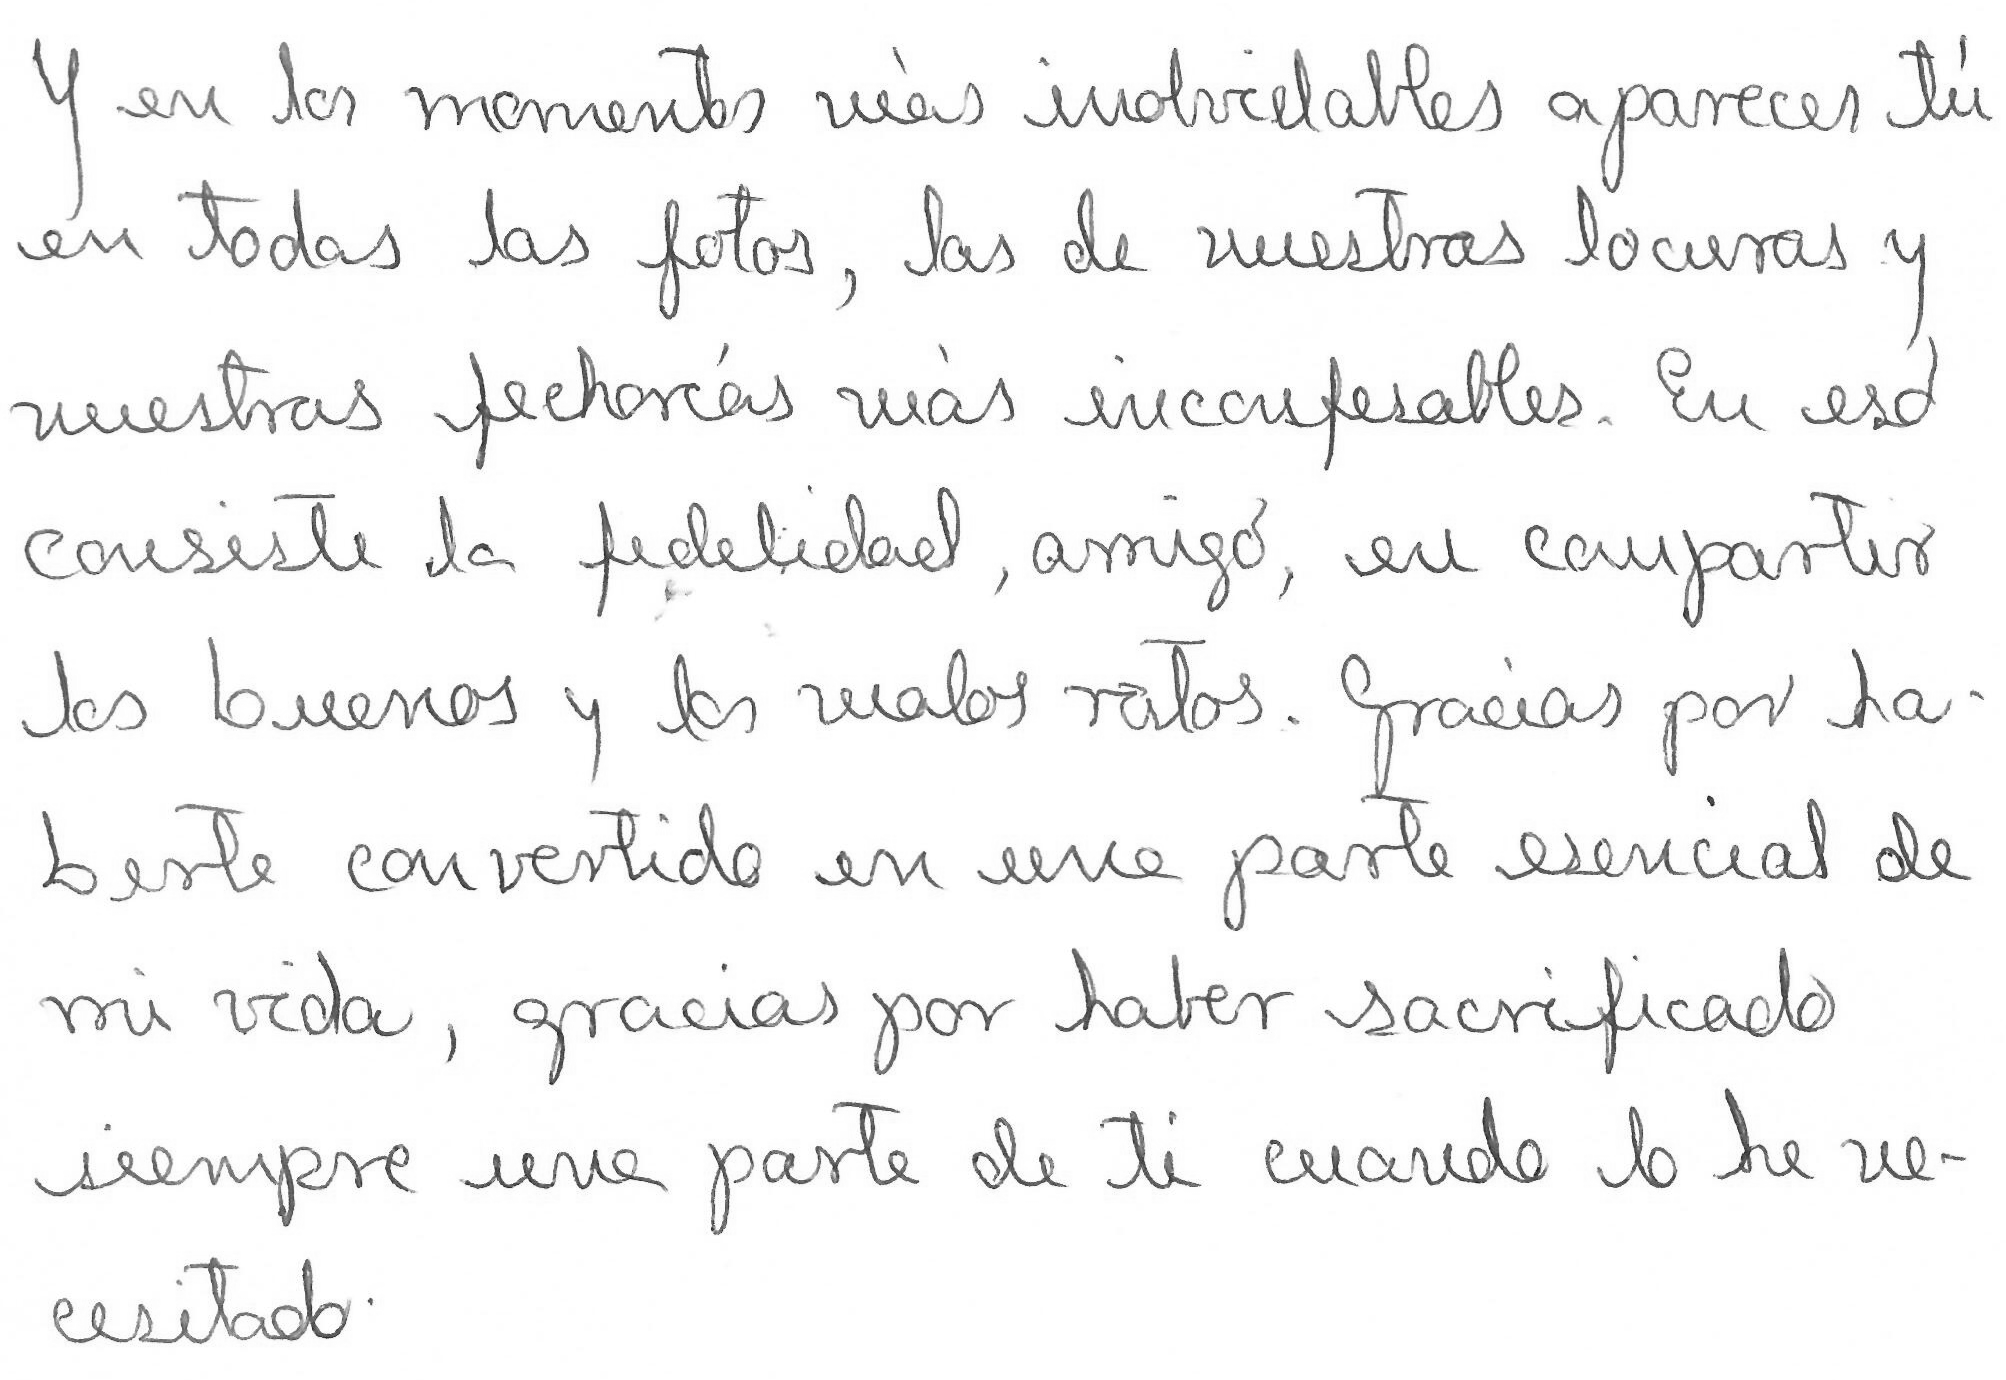 Y en los momentos más inolvidables apareces tú
en todas las fotos, las de nuestras locuras y
nuestras fechorías más inconfesables. En eso
consiste la fidelidad, amigo, en compartir
los buenos y los malos ratos. Gracias por ha-
berte convertido en una parte esencial de
mi vida, gracias por haber sacrificado
siempre una parte de ti cuando lo he ne-
cesitado.